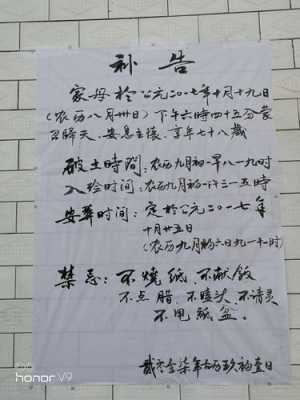 补告
家母於公元二〇一七年十月十九日
(农历八月卅日)下午六時四十五分蒙
召歸天、安息主懷、享年七十八歲
破土時間:农历九月初一早八一九時
入殓时间:农历九月初一下三一五時
安葬时间:定於公元二〇一七年
十月廿五日
(农历九月初六日九一十一时)
禁忌:不燒纸、不献飯
不点腊、不嗑头、不请灵
不甩紙盆。
honor V9